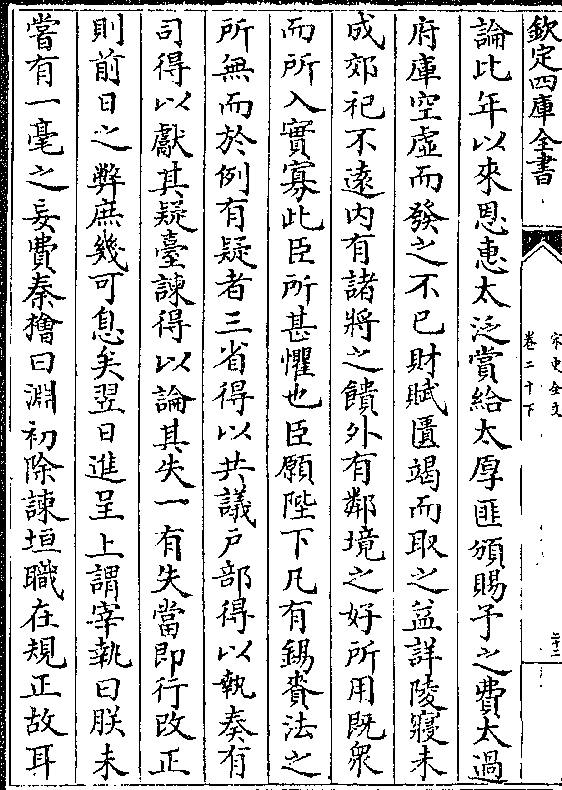 欽定四庫全書
宋史全文
卷二十下
二十二
論比年以來恩惠太泛賞給太厚匪頒賜予之費太過
府庫空虛而發之不已財賦匱竭而取之益詳陵寢未
成郊祀不遠内有諸將之饋外有鄰境之好所用既衆
而所入實寡此臣所甚懼也臣願陛下凡有錫賚法之
所無而於例有疑者三省得以共議戸部得以執奏有
司得以獻其疑臺諫得以論其失一有失當即行改正
則前日之弊庶幾可息矣翌日進呈上謂宰執曰朕未
嘗有一毫之妄費秦檜曰淵初除諫垣職在規正故耳